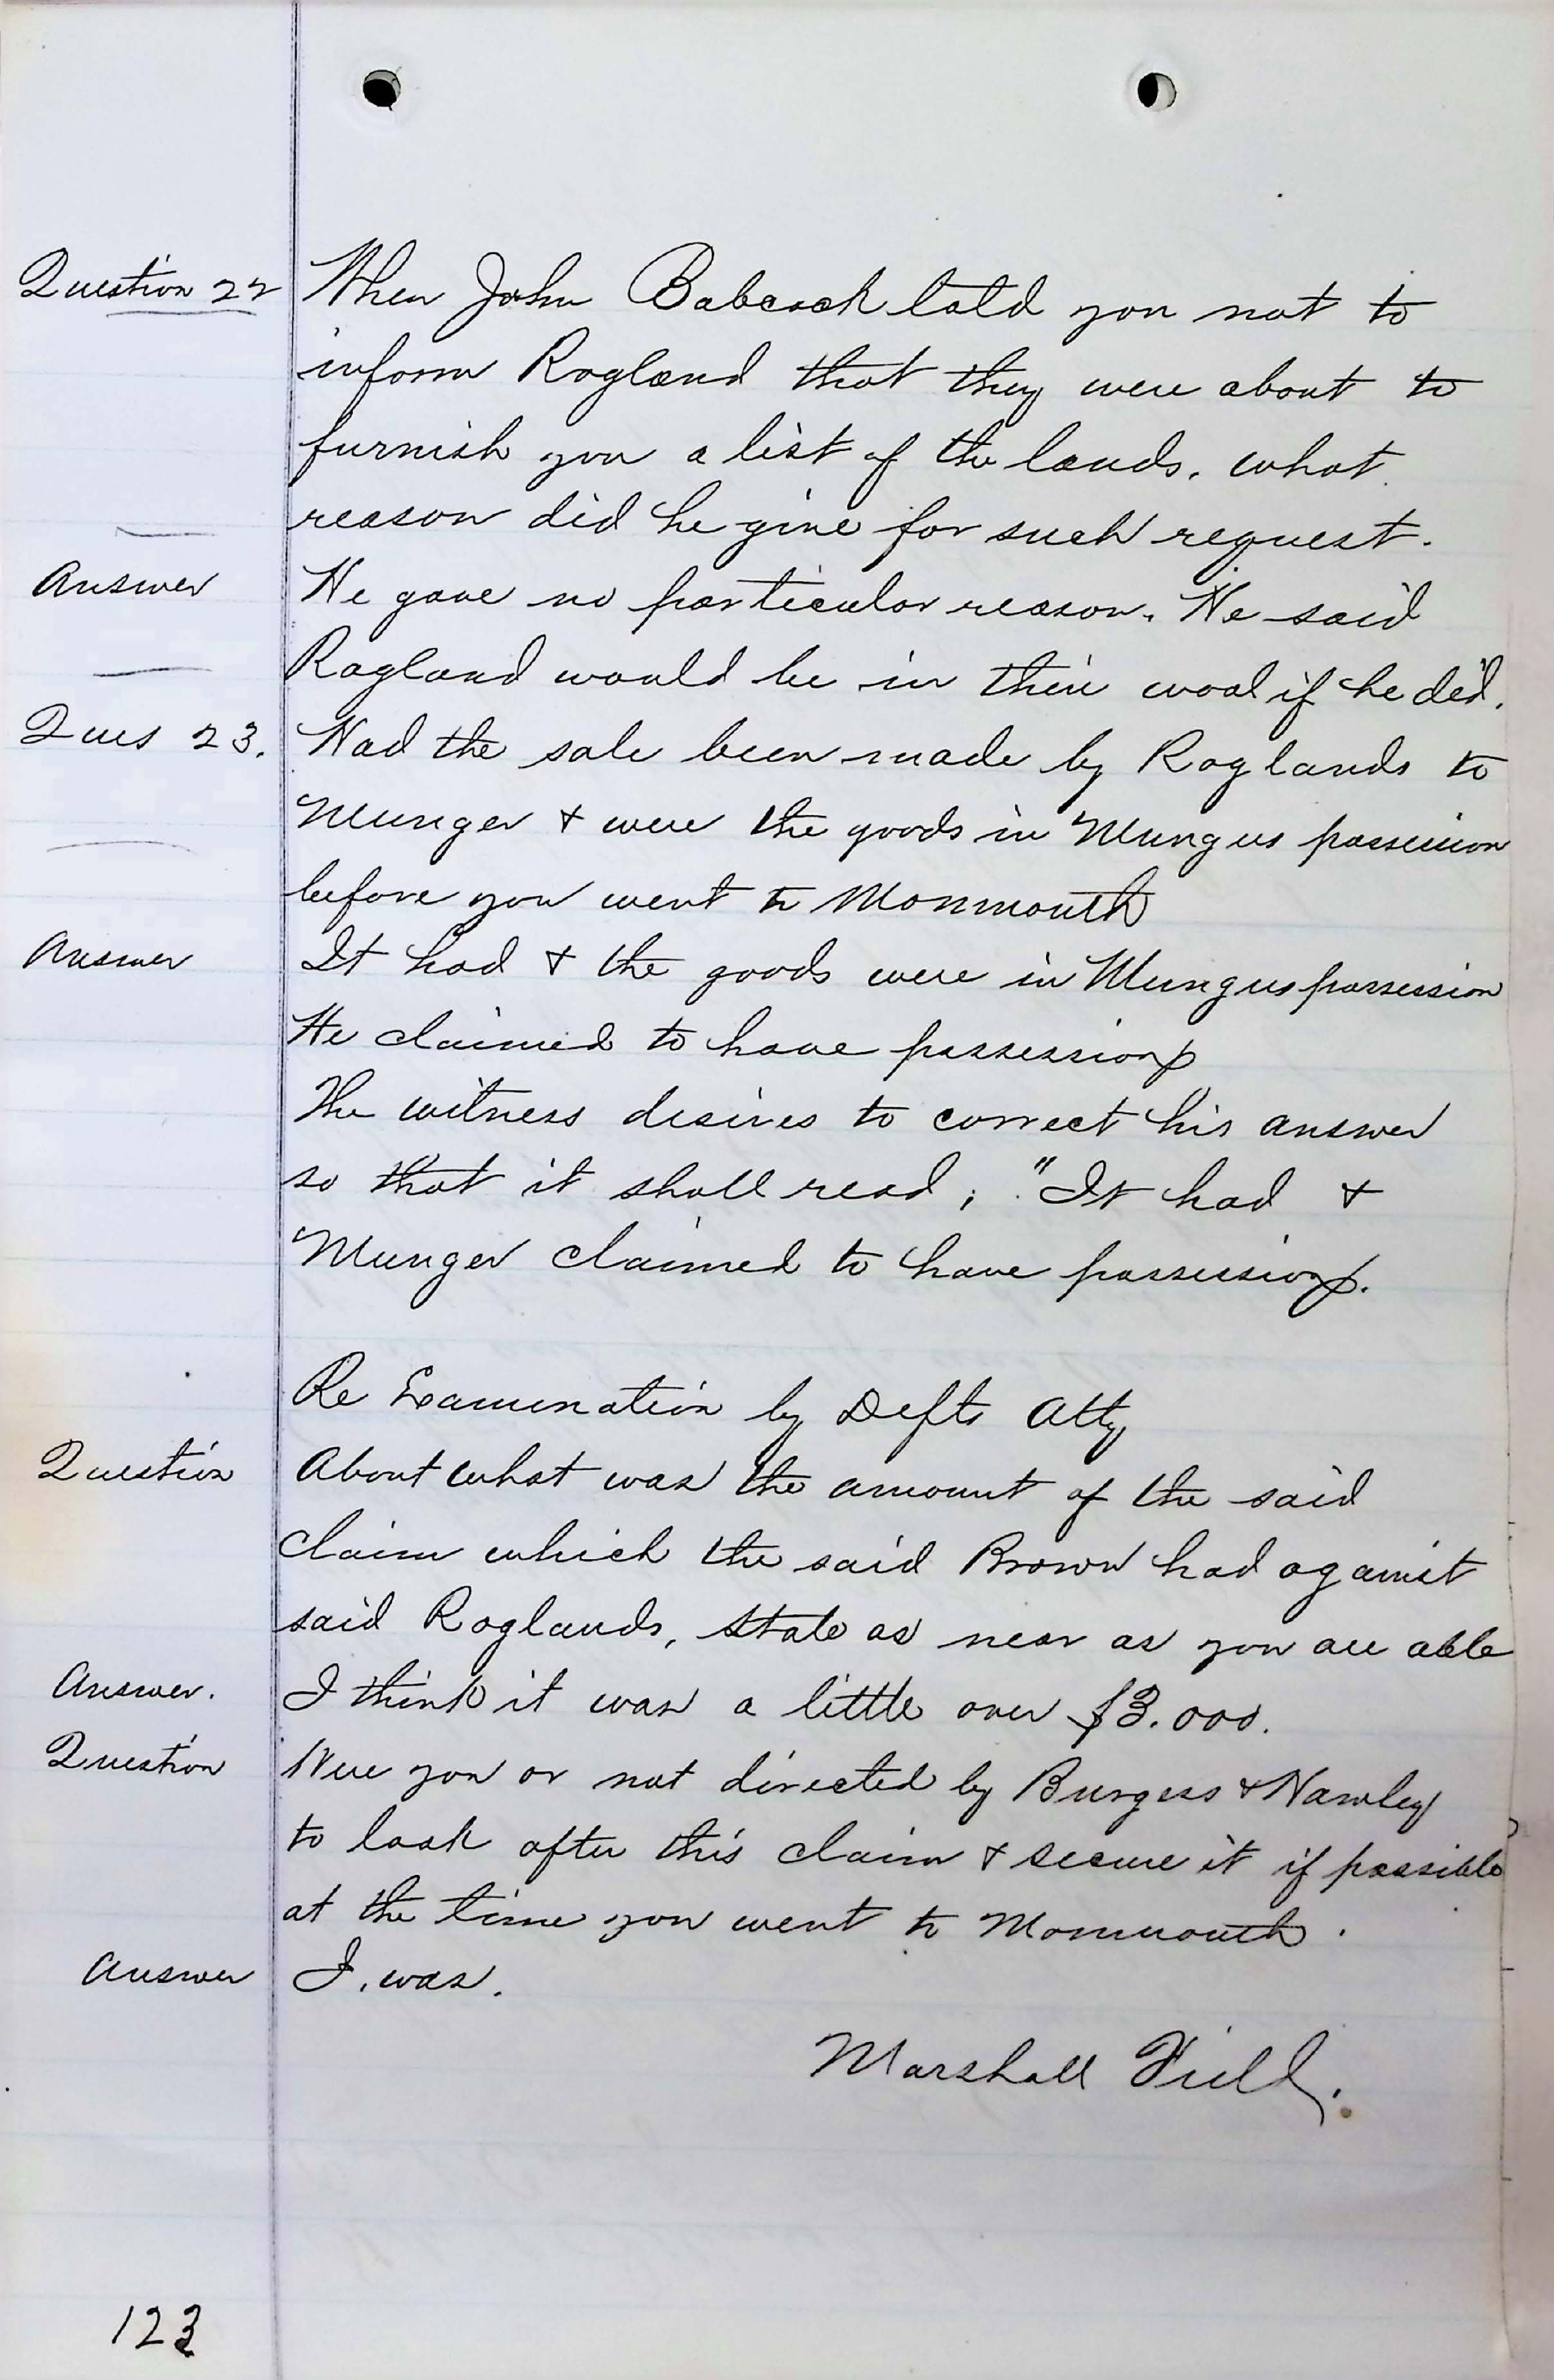 Question 22 When John Babcock told you not to
inform Ragland that they were about to
furnish you a list of the lands. what
reason did he give for such request.
Answer He gave no particular reason. He said
Ragland would be in their wool if he did.
Ques 23. Had the sale been made by Raglands to
Munger & were the goods in Mungers possession
before you went to Monmouth
Answer It had & the goods were in Mungers possession
He claimed to have possession
The witness desires to correct his answer
so that it shall read; "It had &
Munger claimed to have possession.
Re Examination by Defts Atty
Question About what was the amount of the said
claim which the said Brown had against
said Raglands, state as near as you are able
Answer. I think it was a little over $3.000.
Question Were you or not directed by Burgess & Hawley
to look after this claim & secure it if possible
at the time you went to Monmouth.
Answer I. was.
Marshall Field.
123